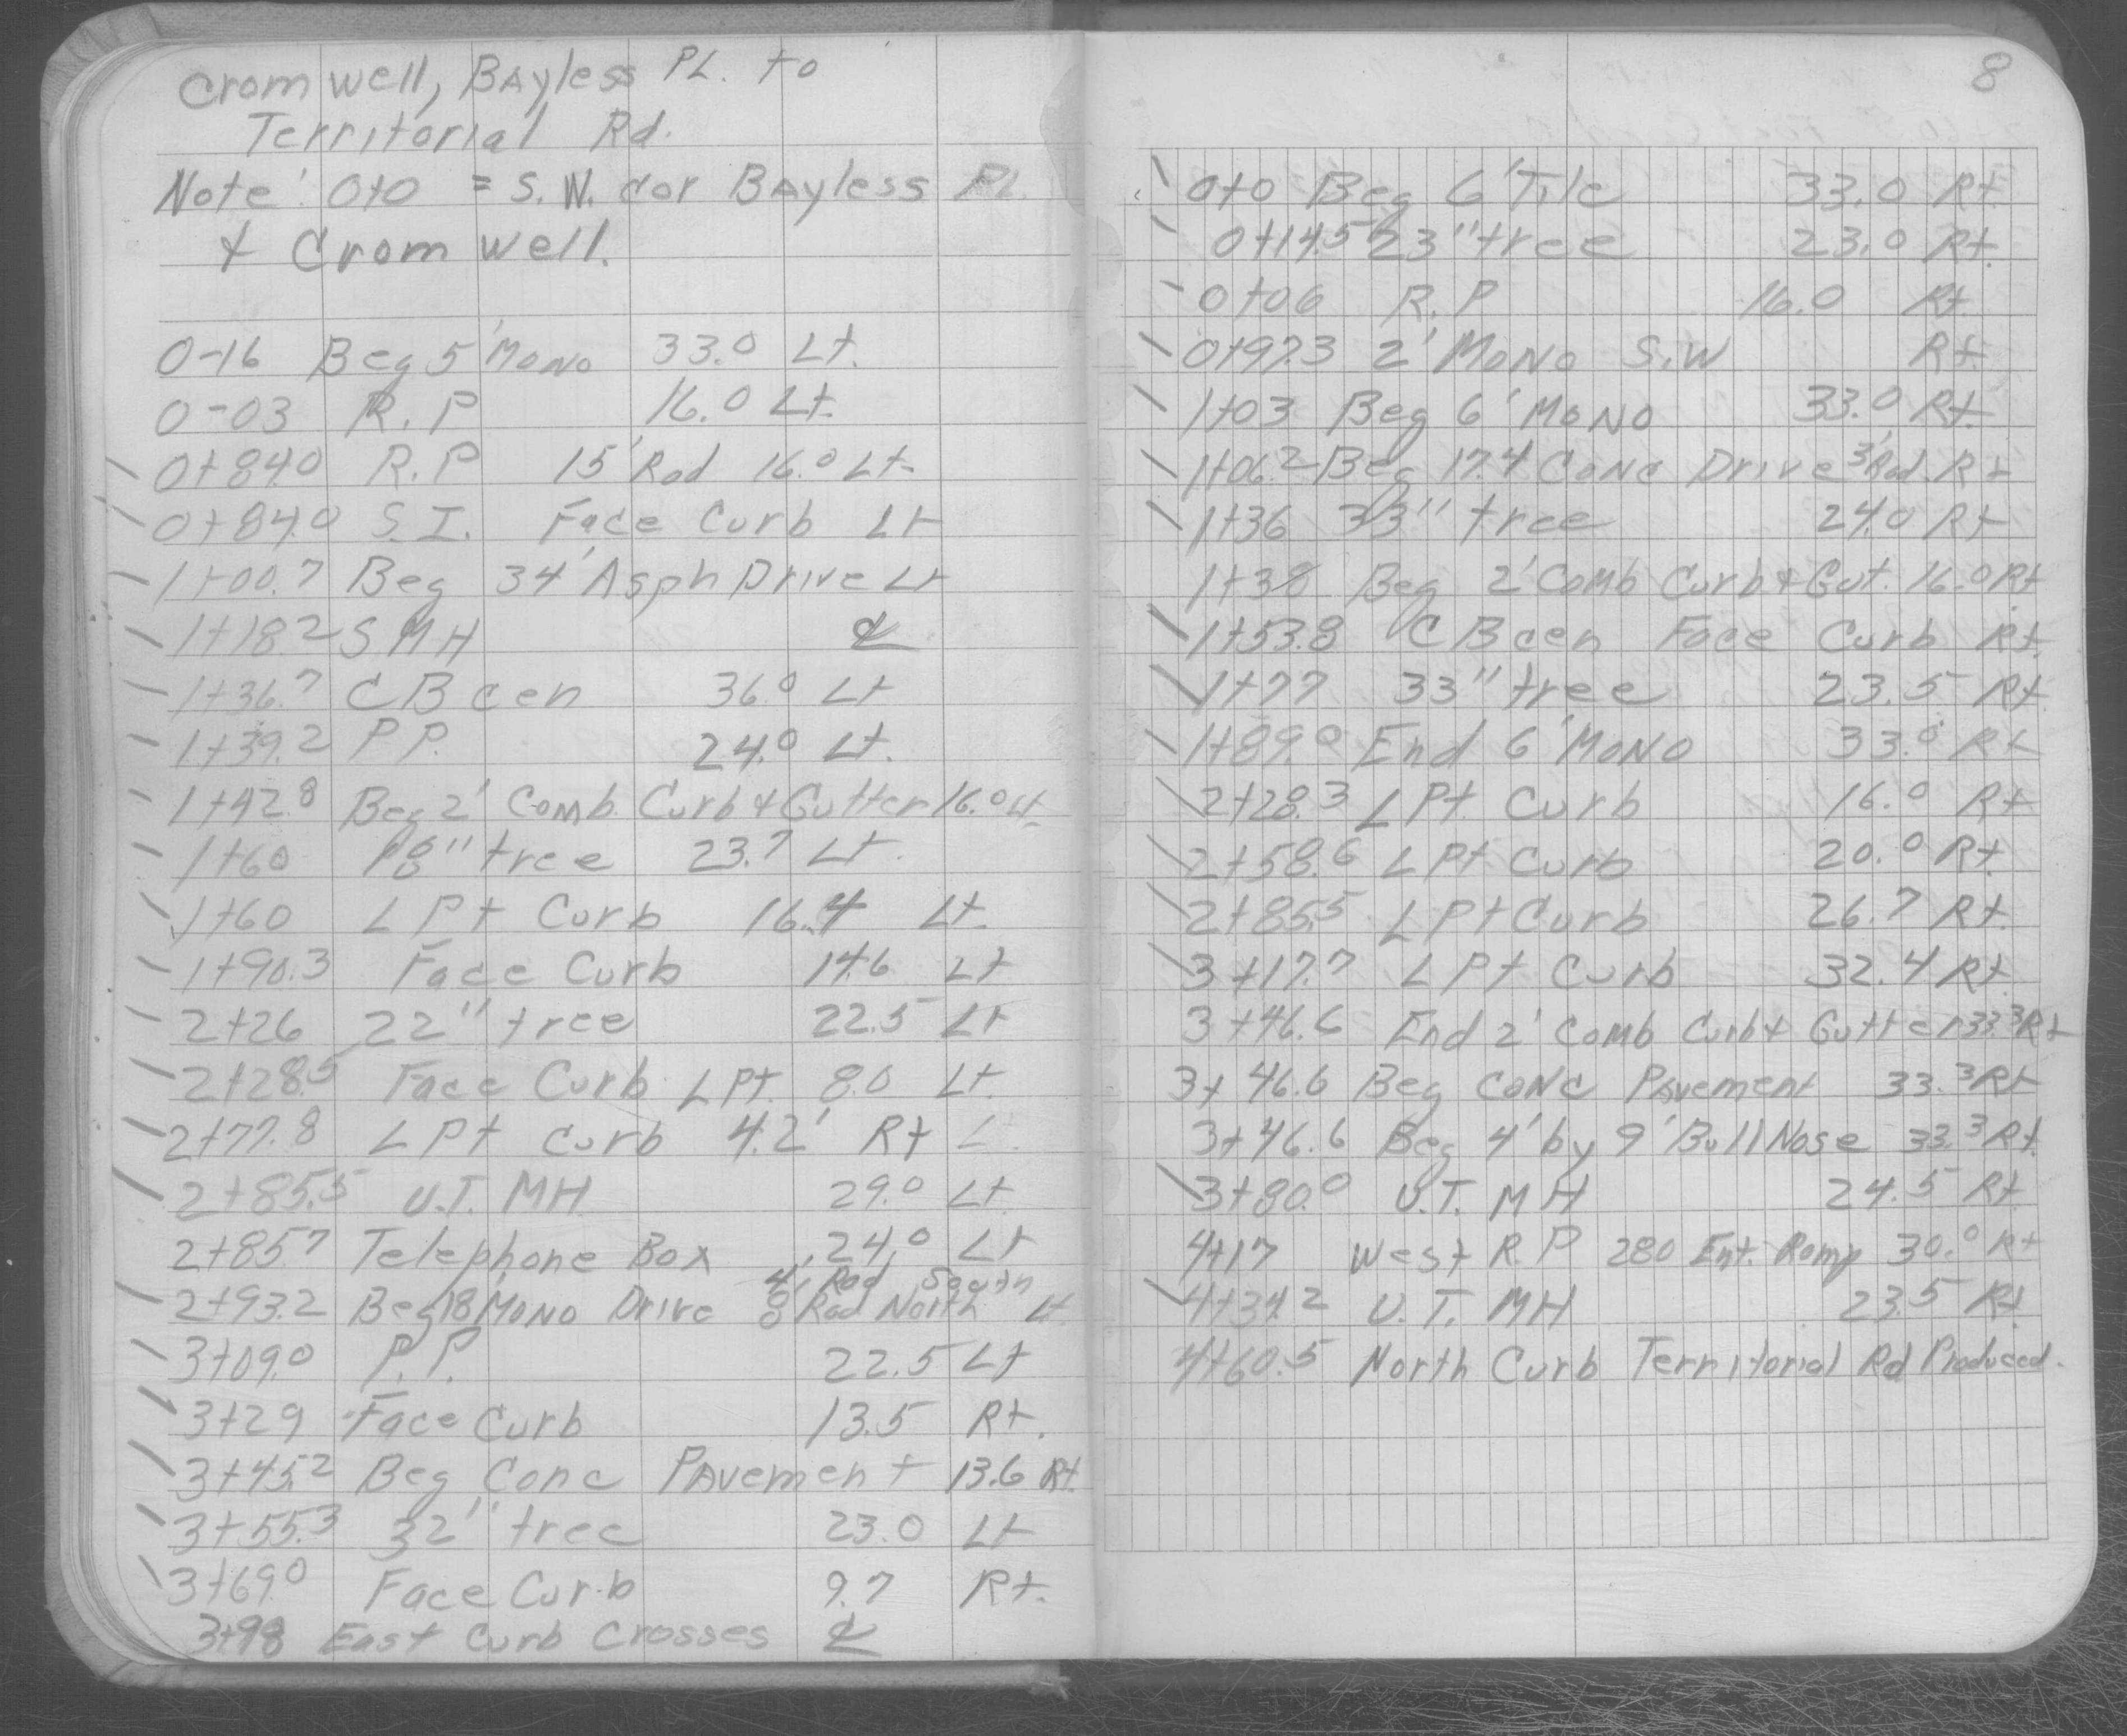 Cromwell, Bayless PL. to
Territorial Rd.
Note: 0+0 = S.W. Cor Bayless PL.
& Cromwell.
0-16 Beg 5' Mono 33.0 Lt.
0-03 R.P 16.0 Lt.
0+84.0 R.P 15' Rad 16.0 Lt.
0+84.0 S.I. Face Curb Lt
1+00.7 Beg 34' Asph Drive Lt
1+18.2 S MH ℄
1+36.7 CB cen 36.0 Lt
1+39.2 P.P. 24.0 Lt.
1+42.8 Beg 2' Comb. Curb & Gutter 16.0 Lt.
1+60 18" tree 23.7 Lt.
1+60 L Pt Curb 16.4 Lt.
1+90.3 Face Curb 14.6 Lt
2+26 22" tree 22.5 Lt
2+28.5 Face Curb L Pt. 8.0 Lt.
2+77.8 L Pt Curb 4.2' Rt
2+85.5 U.T. MH 29.0 Lt
2+85.7 Telephone Box 24.0 Lt
2+93.2 Beg 18' Mono Drive 4' Rad South 8' Rad North Lt
3+09.0 P.P. 22.5 Lt
3+29 Face Curb 13.5 Rt.
3+45.2 Beg Conc Pavement 13.6 Rt.
3+55.3 32" tree 23.0 Lt
3+69.0 Face Curb 9.7 Rt.
3+98 East Curb Crosses ℄
8
0+0 Beg 6' Tile 33.0 Rt.
0+14.5 23" tree 23.0 Rt.
0+06 R.P 16.0 Rt.
0+97.3 2' Mono S.W Rt.
1+03 Beg 6' Mono 33.0 Rt.
1+06.2 Beg 17.4 Conc Drive 3' Rad. Rt
1+36 33" tree 24.0 Rt
1+38 Beg 2' Comb Curb & Gut. 16.0 Rt
1+53.8 CB cen Face Curb Rt.
1+77 33" tree 23.5 Rt.
1+89.0 End 6' Mono 33.0 Rt
2+28.3 L Pt. Curb 16.0 Rt
2+58.6 L Pt Curb 20.0 Rt.
2+85.5 L Pt Curb 26.7 Rt.
3+17.7 L Pt Curb 32.4 Rt.
3+46.6 End 2' Comb Curb & Gutter 33.3 Rt
3+46.6 Beg Conc Pavement 33.3 Rt
3+46.6 Beg 4' by 9' Bull Nose 33.3 Rt.
3+80.0 U.T. MH 24.5 Rt.
4+17 West R.P 280 Ent. Ramp 30.0 Rt
4+34.2 U.T. MH 23.5 Rt.
4+60.5 North Curb Territorial Rd Produced.